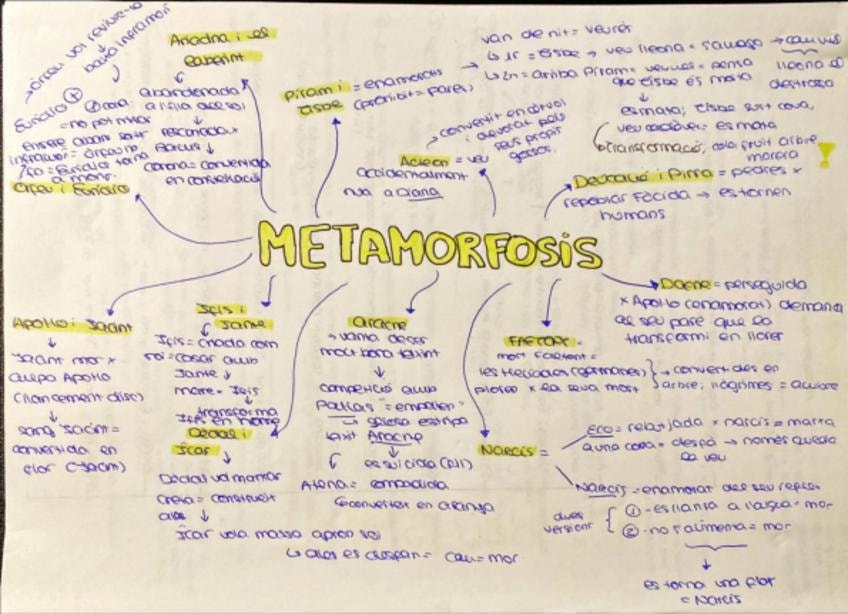 METAMORFOSIS
Orfeu vol reviure-la
baixa inframón
Orfeu i Eurídice
Ariadna i el
laberint
abandonada
a l'illa de sol
rescatada x
Bacus
corona = convertida
en constel·lació
Píram i
Tisbe
= enamorats
(prohibit = pares)
van de nit = veure's
1r = Tisbe → veu lleona = s'amaga → cau vel
lleona el
destrossa
2n = arriba Píram = veu vel = pensa
que Tisbe és mata
es mata; Tisbe surt cova,
veu cadàver = es mata
transformació, color fruit arbre
morera
!
Acteon = veu
accidentalment
nua a Diana
convertit en cérvol
i devorat pels
seus propis
gossos.
Deucalió i Pirra = pedres x
repoblar Fócida → es tornen
humans
Dafne = perseguida
x Apol·lo (enamorat) demana
al seu pare que la
transformi en llorer
FAETONT =
mort Faetont =
les Helíades (germanes)
ploren x la seva mort
convertides en
arbre; llàgrimes = ambre
Eco = rebutjada x narcís = marxa
a una cova = despa → només queda
la veu
Narcís =
Narcís = enamorat del seu reflex
dues
versions
① - es llança a l'aigua = mor
② - no s'alimenta = mor
es torna una flor
= Narcís
Apol·lo i Jacint
Jacint mor x
culpa Apol·lo
(llançament disc)
sang Jacint =
convertida en
flor (Jacint)
Ifis i
Jante
Ifis = criada com
noi = casar amb
Jante
mare = Isis
transforma
Ifis en home
Dèdal i
Ícar
Dèdal vol marxar
Creta = construeix
ales
Ícar vola massa aprop sol
ales es desfan = cau = mor
aracne
vanta de ser
molt bona teixint
competició amb
Pal·las = empaten
gelosa estripa
teixit Aracne
es suïcida
Atena = compadida
converteix en aranya